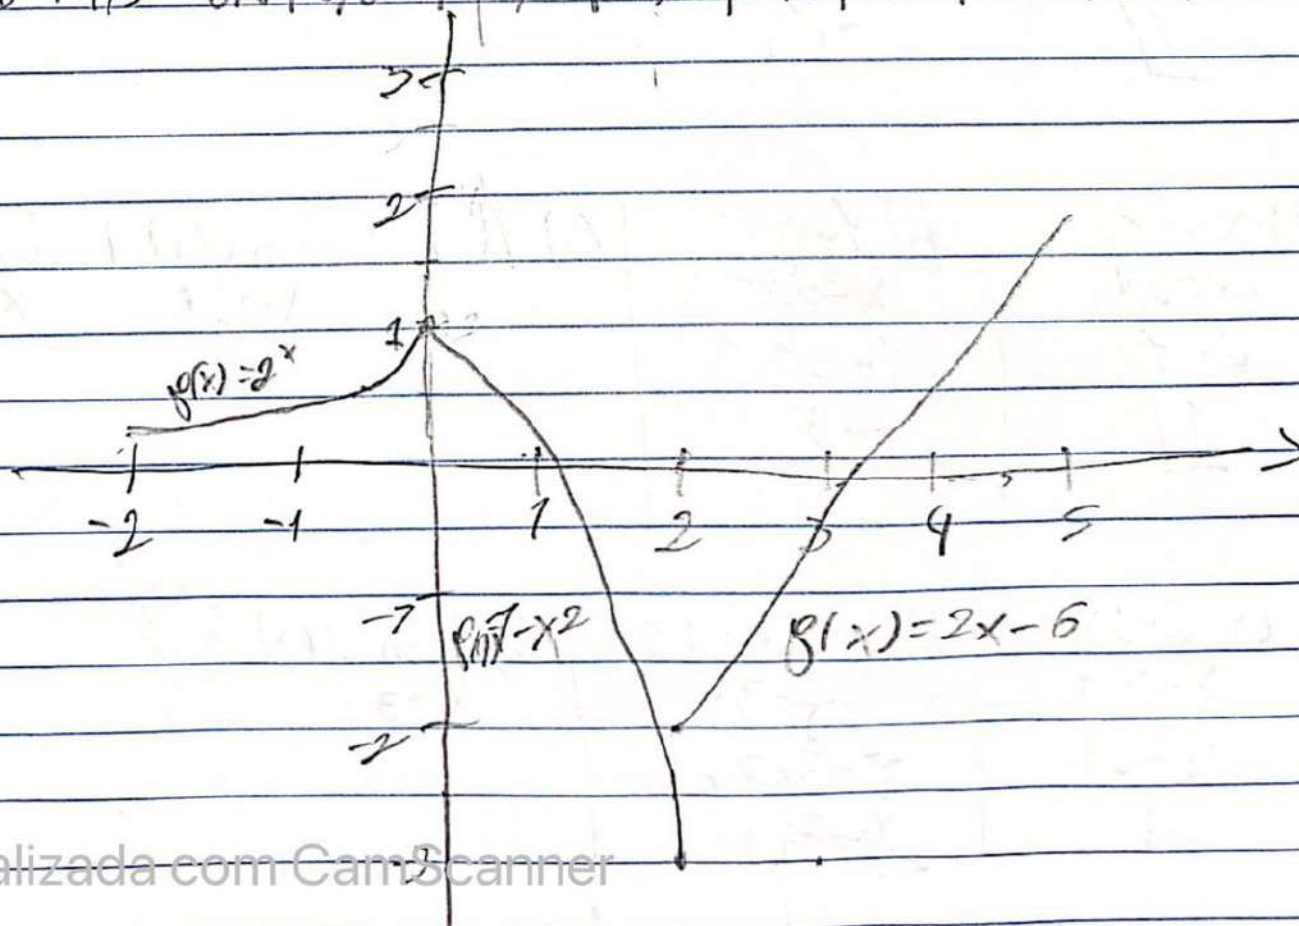 3
2
1
f(x)=2^x
-2 -1 1 2 3 4 5
-1
f(x)=1-x2
f(x)=2x-6
-2
-3
alizada com CamScanner